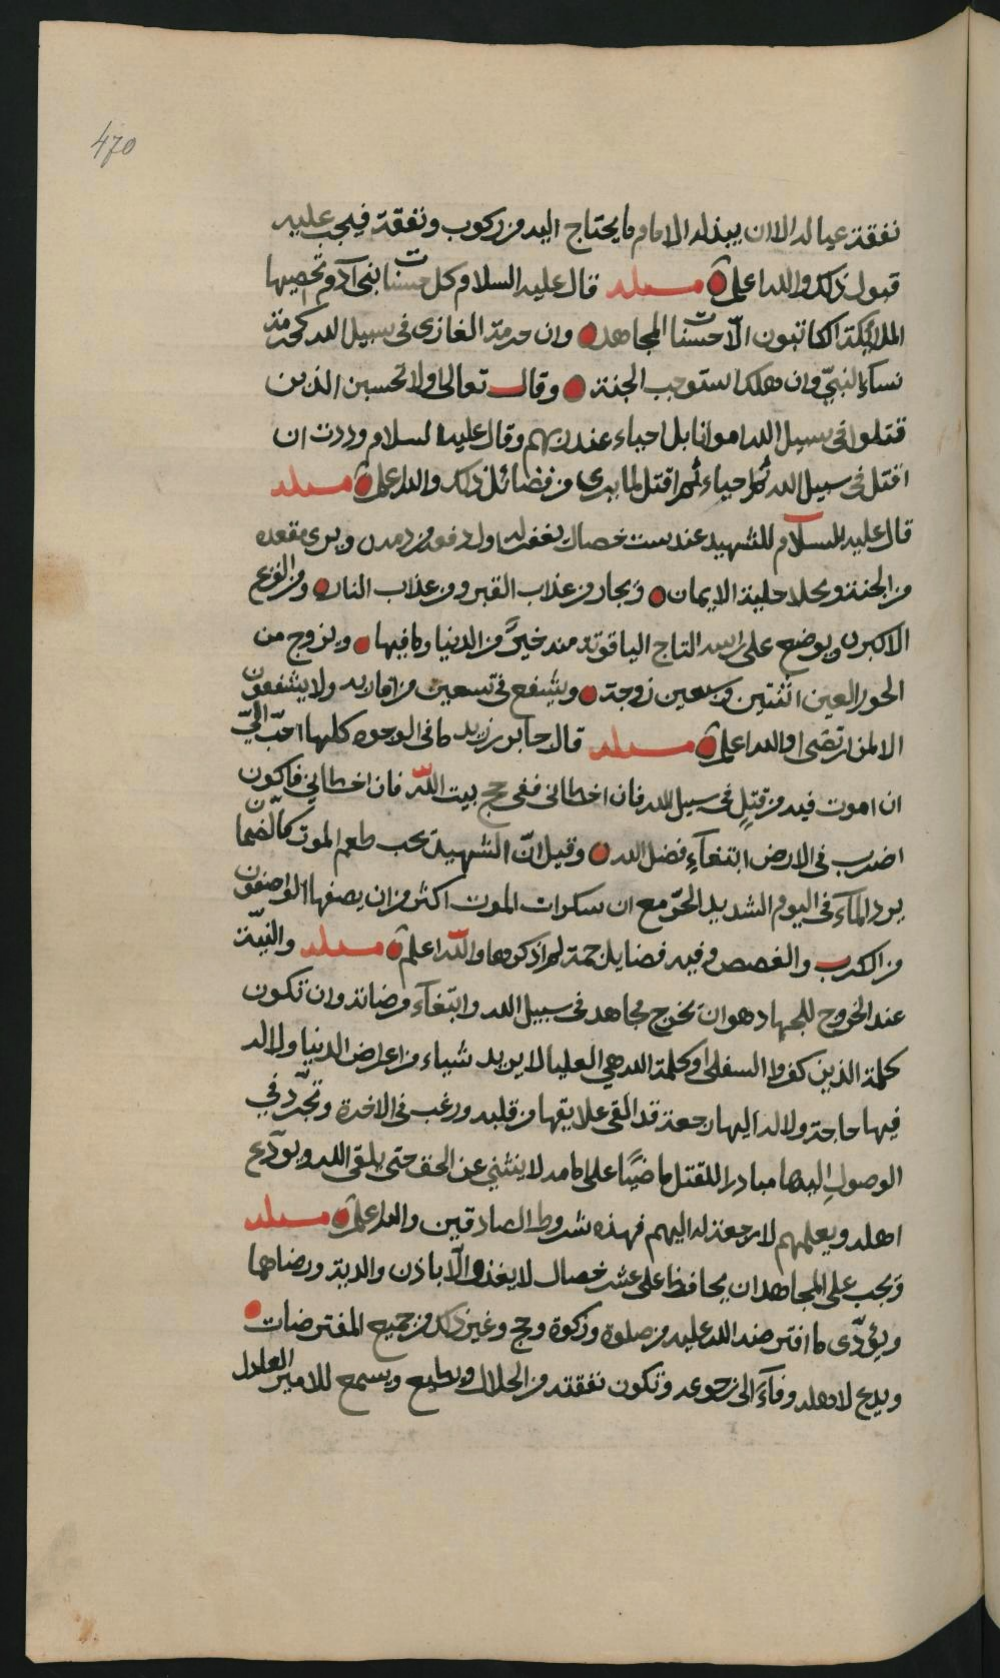 470
نفقة عياله الا ان يبذله الامام ما يحتاج اليه من ركوب ونفقة فيجب عليه
قبول ذلك والله اعلم مسئلة قال عليه السلام كل حسنات ابنى آدم تحصيها
الملائكة الكاتبون الّا حسنات المجاهد وان حرمة الغازى فى سبيل الله كحرمة
نساء النبيّ وان هلك استوجب الجنة وقال تعالى ولا تحسبن الذين
قتلوا فى سبيل الله امواتا بل احياء عند ربهم وقال عليه السلام وددت ان
اقتل فى سبيل الله ثم احياء ثم اقتل لما يرى من فضائل ذلك والله اعلم مسئلة
قال عليه السلام للشهيد عند ست خصال يغفر له اول دفعة من دمه ويرى مقعده
من الجنة ويحلا حلية الايمان ويجار من عذاب القبر ومن عذاب النار ومن الفزع
الاكبر ويوضع على راسه التاج الياقوتة منه خيرٌ من الدنيا وما فيها ويزوج من
الحور العين اثنتين وسبعين زوجة ويشفع فى تسعين من اقاربه ولا يشفعون
الا لمن ارتضى والله اعلم مسئلة قال جابر بن زيد ما فى الوجوه كلها احبّ اليّ
ان اموت فيه من قتيلٍ فى سبيل الله فان اخطانى ففى حج بيت الله فان اخطاني فاكون
اضرب فى الارض ابتغآء فضل الله وقيل انّ الشهيد يحب طعم الموت كما
برد المآء فى اليوم الشديد الحرّ مع ان سكرات الموت اكثر من ان يصفها الواصفون
من الكرب والغصص وفيه فضايل جمة لم اذكرها والله اعلم مسئلة والنيّة
عند الخروج للجهاد هو ان يخرج مجاهد فى سبيل الله وابتغآء مرضاته وان تكون
كلمة الذين كفروا السفلى وكلمة الله هي العليا لا يريد شياء من اعراض الدنيا ولا له
فيها حاجة ولا له اليها رجعة قد القى علايقها من قلبه ورغب فى الاخرة وتجرّد في
الوصولِ اليها مبادرا للقتل ماضيًا على امامه لا ينثني عن الحق حتى يلقى الله ويودّع
اهله ويعلمهم لا رجعة له اليهم فهذه شروط الصادقين والله اعلم مسئلة
ويجب على المجاهد ان يحافظ على عشر خصال لا يغذو الّا باذن والديه ورضاهما
ويؤدّى ما افترضه الله عليه من صلوة وزكوة وحج وغير ذلك من جميع المفترضات
ويدع لاهله وفآءً الى رجوعه وتكون نفقته من الحلال ويطيع ويسمع للامير العادل